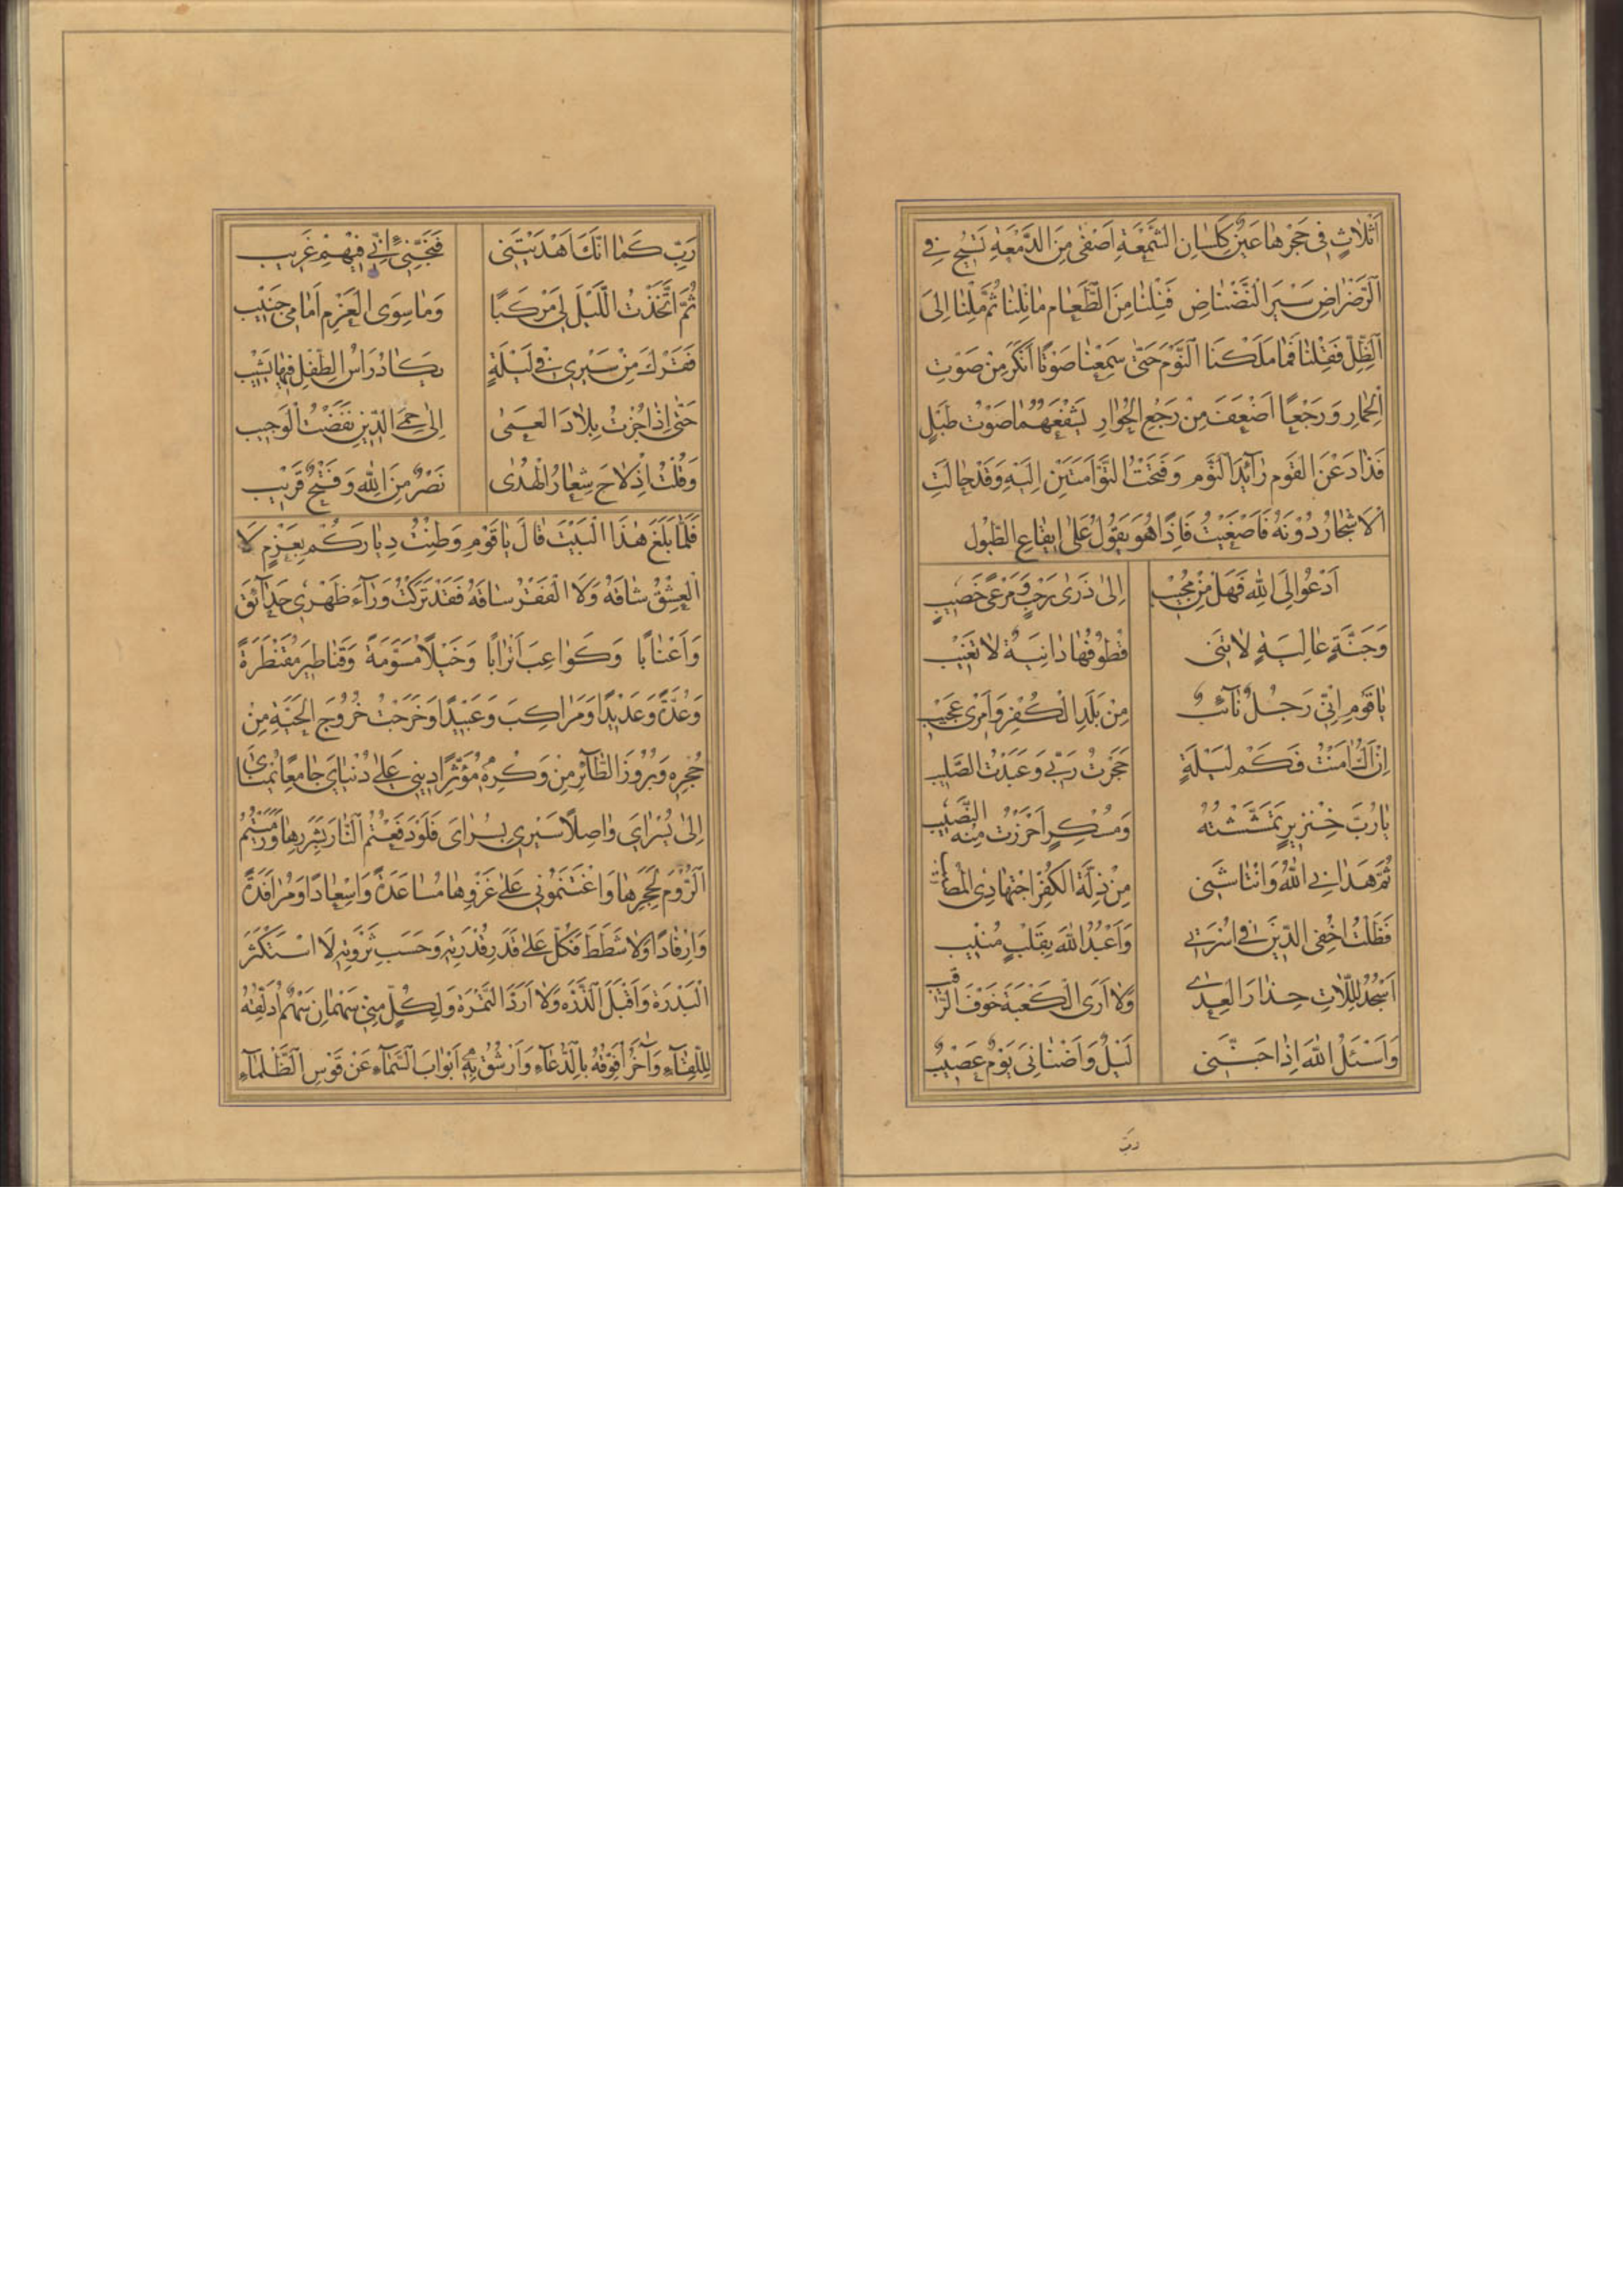 اَثْلاثٍ فى حَجْرِها عَيْنٌ كَلِسانِ الشَّمْعَةِ اَصْفى مِنَ الدَّمْعَةِ تَسيحُ فى
الرَّضْراضِ سَيْرَ النَّضْناضِ فَنِلْنا مِنَ الطَّعامِ ما نِلْنا ثُمَّ مِلْنا اِلىَ
الظِّلِّ فَقِلْنا فَما مَلَكَنا النَّوْمَ حَتّى سَمِعْنا صَوْتًا اَنْكَرَ مِنْ صَوْتِ
الْحِمارِ وَرَجْعًا اَضْعَفَ مِنْ رَجْعِ الْحُوارِ يَشْفَعُهُما صَوْتُ طَبْلٍ
فَذادَ عَنِ القَوْمِ رآئِدَ النَّوْمِ وَفَتَحْتُ التَّوْاَمَتَيْنِ اِلَيْهِ وَقَدْ حالَتِ
الاَشْجارُ دُوْنَهُ فَاَصْغَيْتُ فَاِذا هُوَ يَقُولُ عَلى ايقاعِ الطبُول
اَدْعُو اِلَى اللهِ فَهَلْ مِنْ مُجِيْب اِلى ذَرى رَحْبٍ وَمَرْعىً خَصيبٍ
وَجَنَّةٍ عالِيَةٍ لاتَنى قُطُوفُها دانِيَةٌ لاتَغيْب
ياقَوْمِ اِنّى رَجُلٌ تآئبٌ مِنْ بَلَدِ الْكُفْرِ وَاَمْرى عَجيْب
اِنْ اَكُ اٰمَنْتُ فَكَمْ لَيْلَةٍ جَحَدْتُ رَبّى وَعَبَدْتُ الصَّليب
يارُبَّ خِنْزيرٍ تَمَشَّشْتُهُ وَمُسْكِرٍ اَحْرَزْتُ مِنْه النَّصيْب
ثُمَّ هَدانِى اللهُ وَانْتاشَنى مِنْ ذِلَّةِ الكُفْرِ اجْتِهادِى الْمُصيب
فَظَلْتُ اُخْفِى الدّيْنَ فى اُسْرَتى وَاَعْبُدُ اللهَ بِقَلْبٍ مُنيْب
اَسْجُدُ لِلّلاتِ حِذارَ العِدى وَلااَرَى الْكَعْبَةَ خَوْفَ الرَّقيب
وَاَسْئَلُ اللهَ اِذا جَنَّنى لَيْلٌ وَاَضْنانىَ يَوْمٌ عَصيْبٌ
ربّ
رَبِّ كَما اَنَّكَ اَهْدَيْتَنى فَنَجِّنى اِنّى فيْهِمْ غَريب
ثُمَّ اتَّخَذْتُ الَّليْلَ لى مَرْكَبًا وَماسِوَى العَزْمِ اَمامى جَنيْب
فَقَدْكَ مِنْ سَيْرى فى لَيْلَةٍ يكادُ رَاْسُ الطِّفْلِ فيها يَشْيْب
حَتّى اِذا جُزْتُ بِلادَ العَمى اِلى حِمَى الدّينِ نَفَضْتُ الْوَجيب
وَقُلْتُ اِذْلاحَ شِعارُ الْهُدى نَصْرٌ مِنَ اللهِ وَفَتْحٌ قَريْب
فَلَمّا بَلَغَ هٰذَا الْبَيْتَ قالَ ياقَوْمِ وَطِئْتُ دِيارَكُمْ بِعَزْمٍ لاَ
الْعِشْقُ شاقَهُ وَلاَ الْفَقْرُ ساقَهُ فَقَدْ تَرَكْتُ وَرآءَ ظَهْرى حَدآئِقَ
وَاَعْنابًا وَكَواعِبَ اَتْرابًا وَخَيْلًا مُسَوَّمَةً وَقَناطيرَ مُقَنْطَرَةً
وَعُدَّةً وَعَديْدًا وَمَراكِبَ وَعَبيْدًا وَخَرَجْتُ خُرُوجَ الحَيَّةِ مِنْ
جُحْرِهِ وَبُرُوزَ الطّآئِرِ مِنْ وَكْرِهِ مُؤْثِرًا دينى عَلى دُنْياىَ جامِعًا يُمْناىَ
اِلى يُسْراىَ واصِلًا سَيْرى بِسُراىَ فَلَوْ دَفَعْتُمُ النّارَ بِشَرَرِها وَرَمَيْتُمُ
الرُّوْمَ بِحَجَرِها وَاَعَنْتُمُونى عَلى غَزْوِها مُساعَدَةً وَاِسْعادًا وَمُرافَدَةً
وَاِرْفادًا وَلاشَطَطَ فَكُلٌّ عَلى قَدْرِ قُدْرَتِهِ وَحَسَبِ ثَرْوَتِهِ لا اَسْتَكْثِرُ
الْبَدْرَةَ وَاَقْبَلُ الذَّرَّةَ وَلا اَرُدُّ التَّمْرَةَ وَلِكُلٍّ مِنّى سَهْمانِ سَهْمٌ اُذَلِّقُهُ
لِلِّقآءِ وَآخَرُ اُفَوِّقُهُ بِالدُّعآءِ وَاَرْشُقُ بِهِ اَبْوابَ السَّمآءِ عَنْ قَوْسِ الظَّلْمآءِ